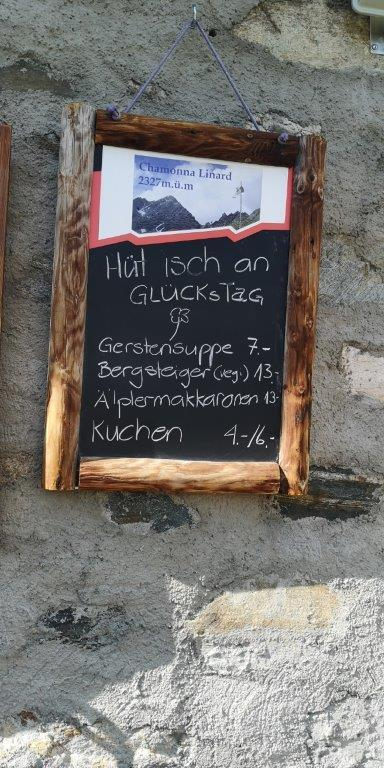 Chamonna Linard
2327m.ü.m
Hüt isch an
GLÜCKsTag
Gerstensuppe 7.-
Bergsteiger (veg.) 13.-
Älplermakkaronen 13.-
Kuchen 4.-/6.-